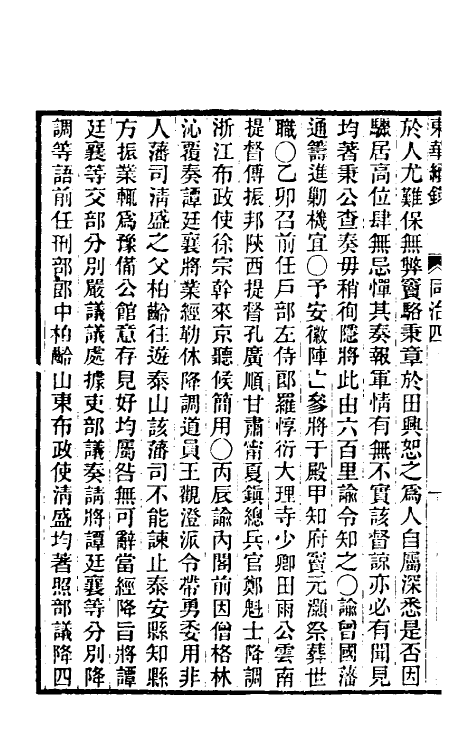 東華續錄　同治四
於人尤難保無弊竇駱秉章於田興恕之爲人自屬深悉是否因
驟居高位肆無忌憚其奏報軍情有無不實該督諒亦必有聞見
均著秉公查奏毋稍徇隱將此由六百里諭令知之○諭曾國藩
通籌進勦機宜○予安徽陣亡參將于殿甲知府竇元灝祭葬世
職○乙卯召前任戶部左侍郎羅惇衍大理寺少卿田雨公雲南
提督傅振邦陝西提督孔廣順甘肅甯夏鎭總兵官鄭魁士降調
浙江布政使徐宗幹來京聽候簡用○丙辰諭內閣前因僧格林
沁覆奏譚廷襄將業經勒休降調道員王觀澄派令帶勇委用非
人藩司淸盛之父柏齡往遊泰山該藩司不能諫止泰安縣知縣
方振業輒爲豫備公館意存見好均屬咎無可辭當經降旨將譚
廷襄等交部分別嚴議議處據吏部議奏請將譚廷襄等分別降
調等語前任刑部郎中柏齡山東布政使淸盛均著照部議降四